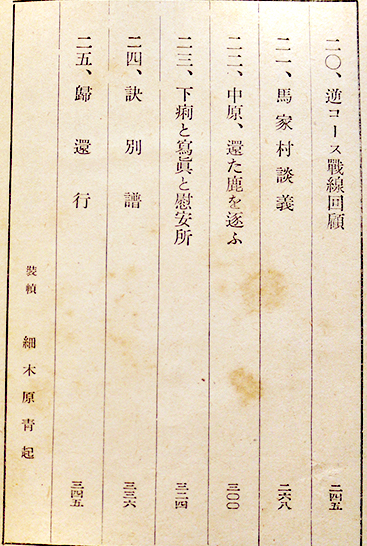 二〇、逆コース戰線回顧 二四五
二一、馬家村談義 二六八
二二、中原、還た鹿を逐ふ 三〇〇
二三、下痢と寫眞と慰安所 三二四
二四、訣別譜 三三六
二五、歸還行 三四五
裝幀 細木原青起